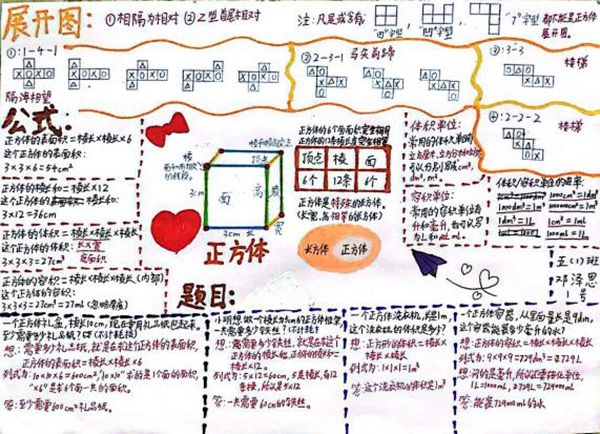 展开图: ①相隔为相对 ②Z型首尾相对
注:凡是或含有
"田"字型
"凹"字型
"7"字型 都不能是正方体
展开图。
①:1-4-1
隔海相望
②2-3-1
③:3-3
楼梯
④:2-2-2
楼梯
公式:
正方体的表面积=棱长×棱长×6
这个正方体的表面积:
3×3×6=54cm²
正方体的棱长和=棱长×12
这个正方体的棱长和:
3×12=36cm
正方体的体积=棱长×棱长×棱长
这个正方体的体积: 长×宽
3×3×3=27cm³ 底面积
正方体的容积=棱长×棱长×棱长(内部)
这个正方体的容积:
3×3×3=27cm³=27ml (忽略厚度)
顶点
棱
面
高
宽
3cm
3cm 长
正方体
正方体的6个面面积完全相同
正方体的12条棱长度完全相等
顶点 棱 面
8个 12条 6个
正方体是特殊的长方体。
(长、宽、高相等的长方体)
长方体 正方体
体积单位:
常用的体积单位有
可以分别写成cm³,
dm³, m³
容积单位:
常用的容积单位有
升和毫升,也可以写
为L和mL
体积/容积单位的进率:
1000cm³=1dm³
1000dm³=1m³
1dm³=1L
1cm³=1mL
1L=1000mL
五(1)班
邓泽思
1号
题目:
一个正方体礼盒,棱长10cm,现在要用礼品纸包起来,
至少需要多少礼品纸?
想:需要多少礼品纸,就是在求这个正方体的表面积,
正方体的表面积=棱长×棱长×6
列式为:10×10×6=600cm²,"10×10"求的是1个面的面积,
"×6"是求6个面一共的面积。
答:至少需要600cm²礼品纸。
小明想做一个棱长为5cm的正方体框架,
一共需要多少铁丝?
棱长×12。
列式为:5×12=60cm,5是棱长,有12
条棱,所以是5×12
答:一共需要60cm的铁丝。
一个正方体洗衣机,棱长1m,
这个洗衣机的体积是多少?
想:正方形的体积=棱长×
棱长×棱长
列式为:1×1×1=1m³
答:这个洗衣机的体积是1m³
一个正方体容器,从里面量长是9dm,
这个容器能装多少毫升的水?
想:正方体的容积=棱长×棱长×
棱长
列式为:9×9×9=729dm³=0.729L
想:问的是毫升,所以还要转化单位,
答:能装729000ml的水